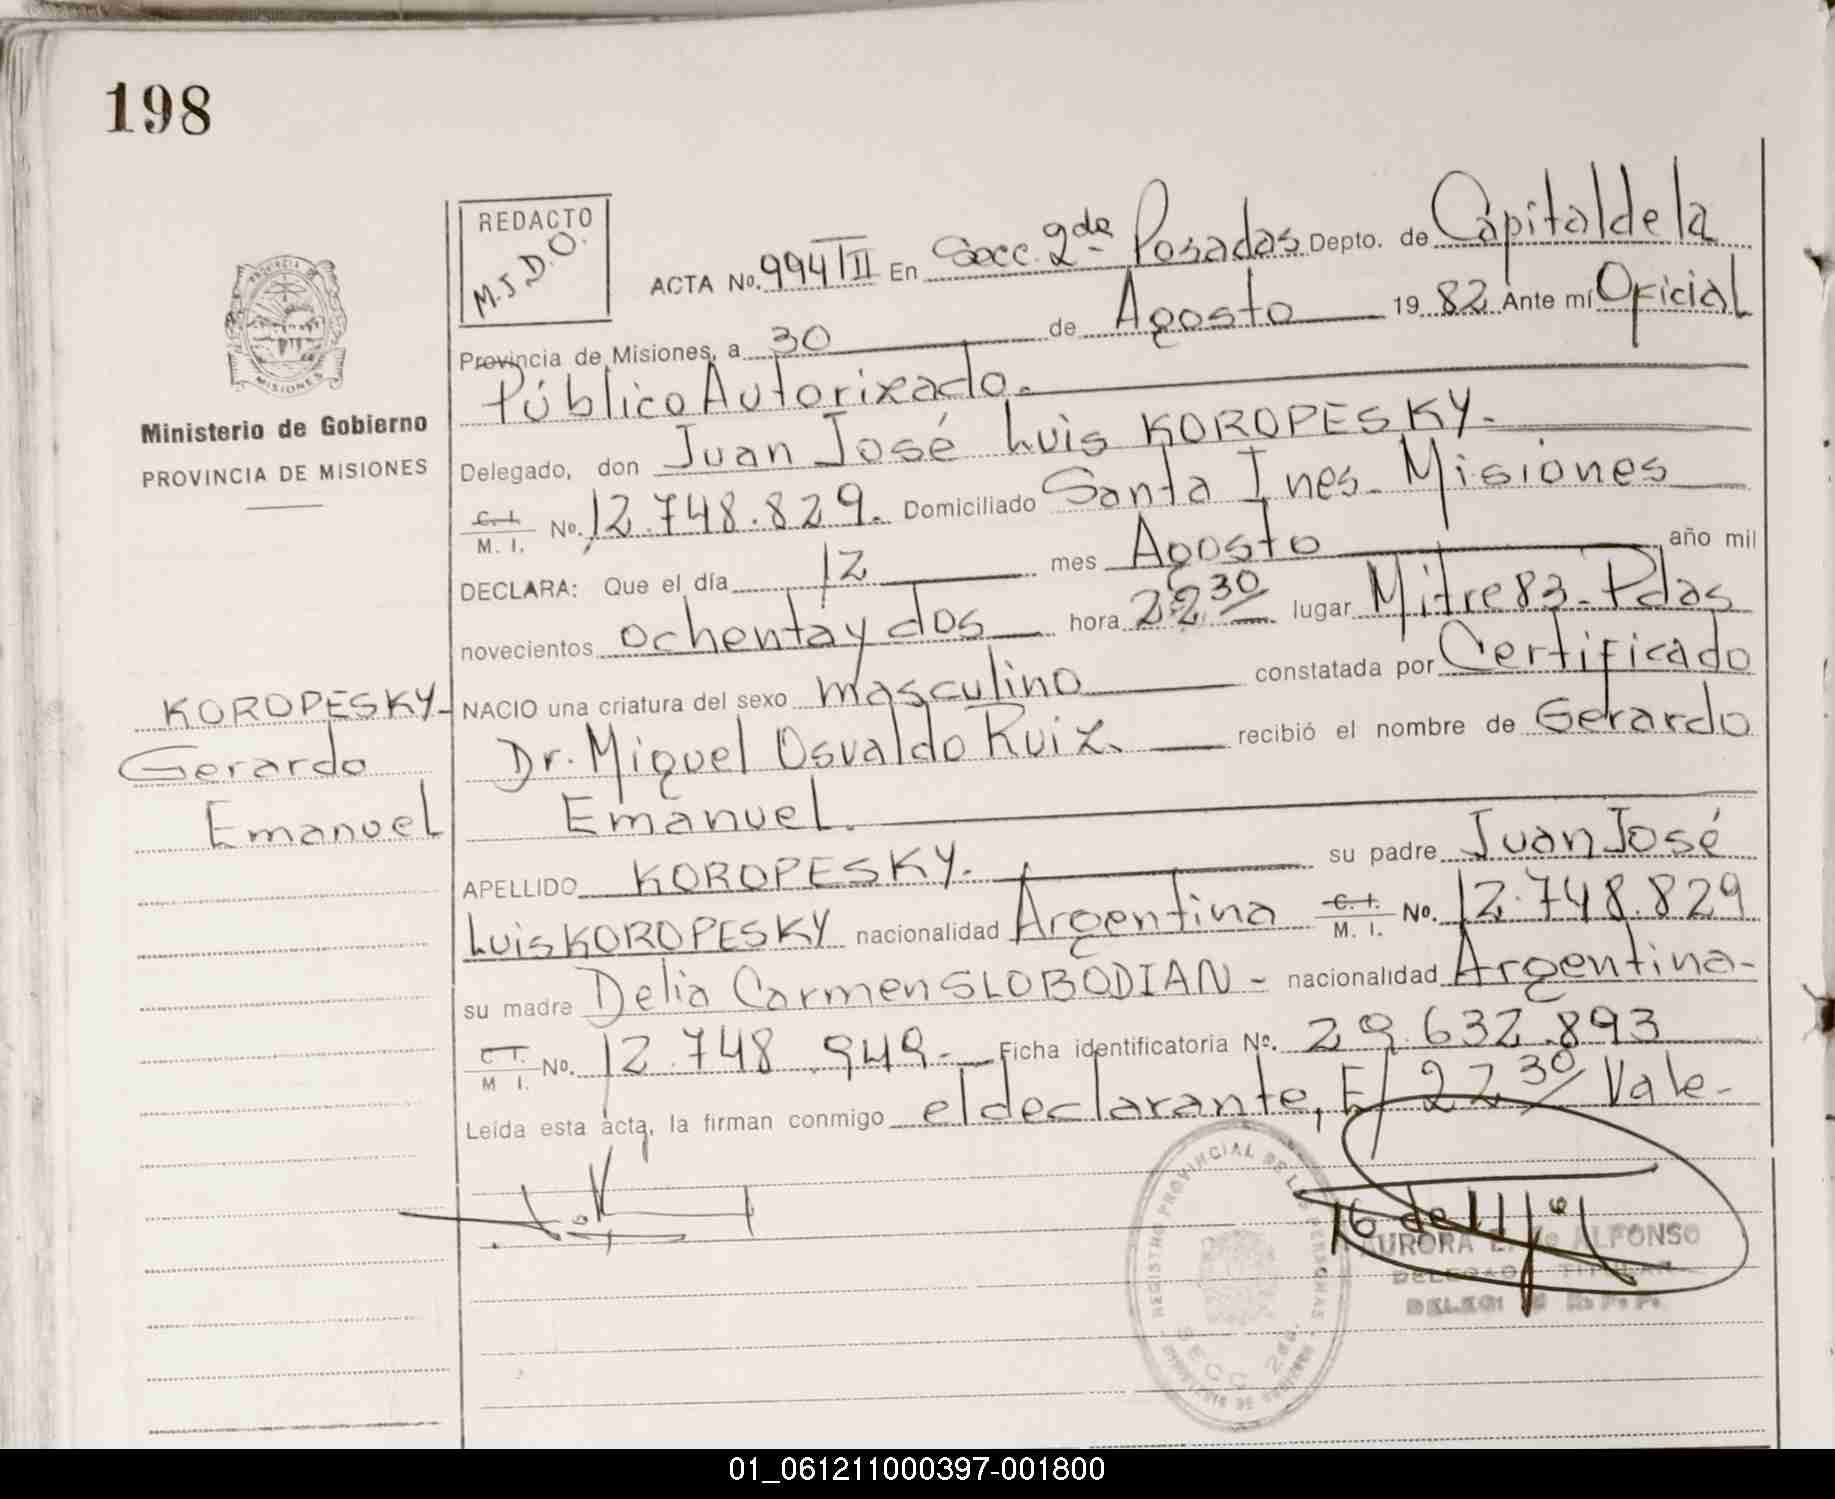 198
REDACTO
M.J.D.O.
ACTA No. 994 TII En Secc. 2da Posadas Depto. de Capital de la
Provincia de Misiones, a 30 de Agosto 1982 Ante mí Oficial
Público Autorizado.
Ministerio de Gobierno
PROVINCIA DE MISIONES
Delegado, don Juan José Luis KOROPESKY.
C. I. M. I. No. 12.748.829. Domiciliado Santa Ines. Misiones
DECLARA: Que el día 12 mes Agosto año mil
novecientos ochenta y dos hora 22 30 lugar Mitre 83 - Pdas
NACIO una criatura del sexo masculino constatada por Certificado
Dr. Miguel Osvaldo Ruiz. recibió el nombre de Gerardo
Emanuel.
KOROPESKY-
Gerardo
Emanuel
APELLIDO KOROPESKY. su padre Juan José
Luis KOROPESKY nacionalidad Argentina C. I. M. I. No. 12.748.829
su madre Delia Carmen SLOBODIAN - nacionalidad Argentina-
C I. M I. No. 12.748.949.- Ficha identificatoria Nº. 29.632.893
Leída esta acta, la firman conmigo el declarante, E/ 22 30/ Vale-
REGISTRO PROVINCIAL DE LAS PERSONAS
SECC. 2da.
PROVINCIA DE MISIONES
AURORA E. de ALFONSO
DELEGADO TITULAR
01_061211000397-001800